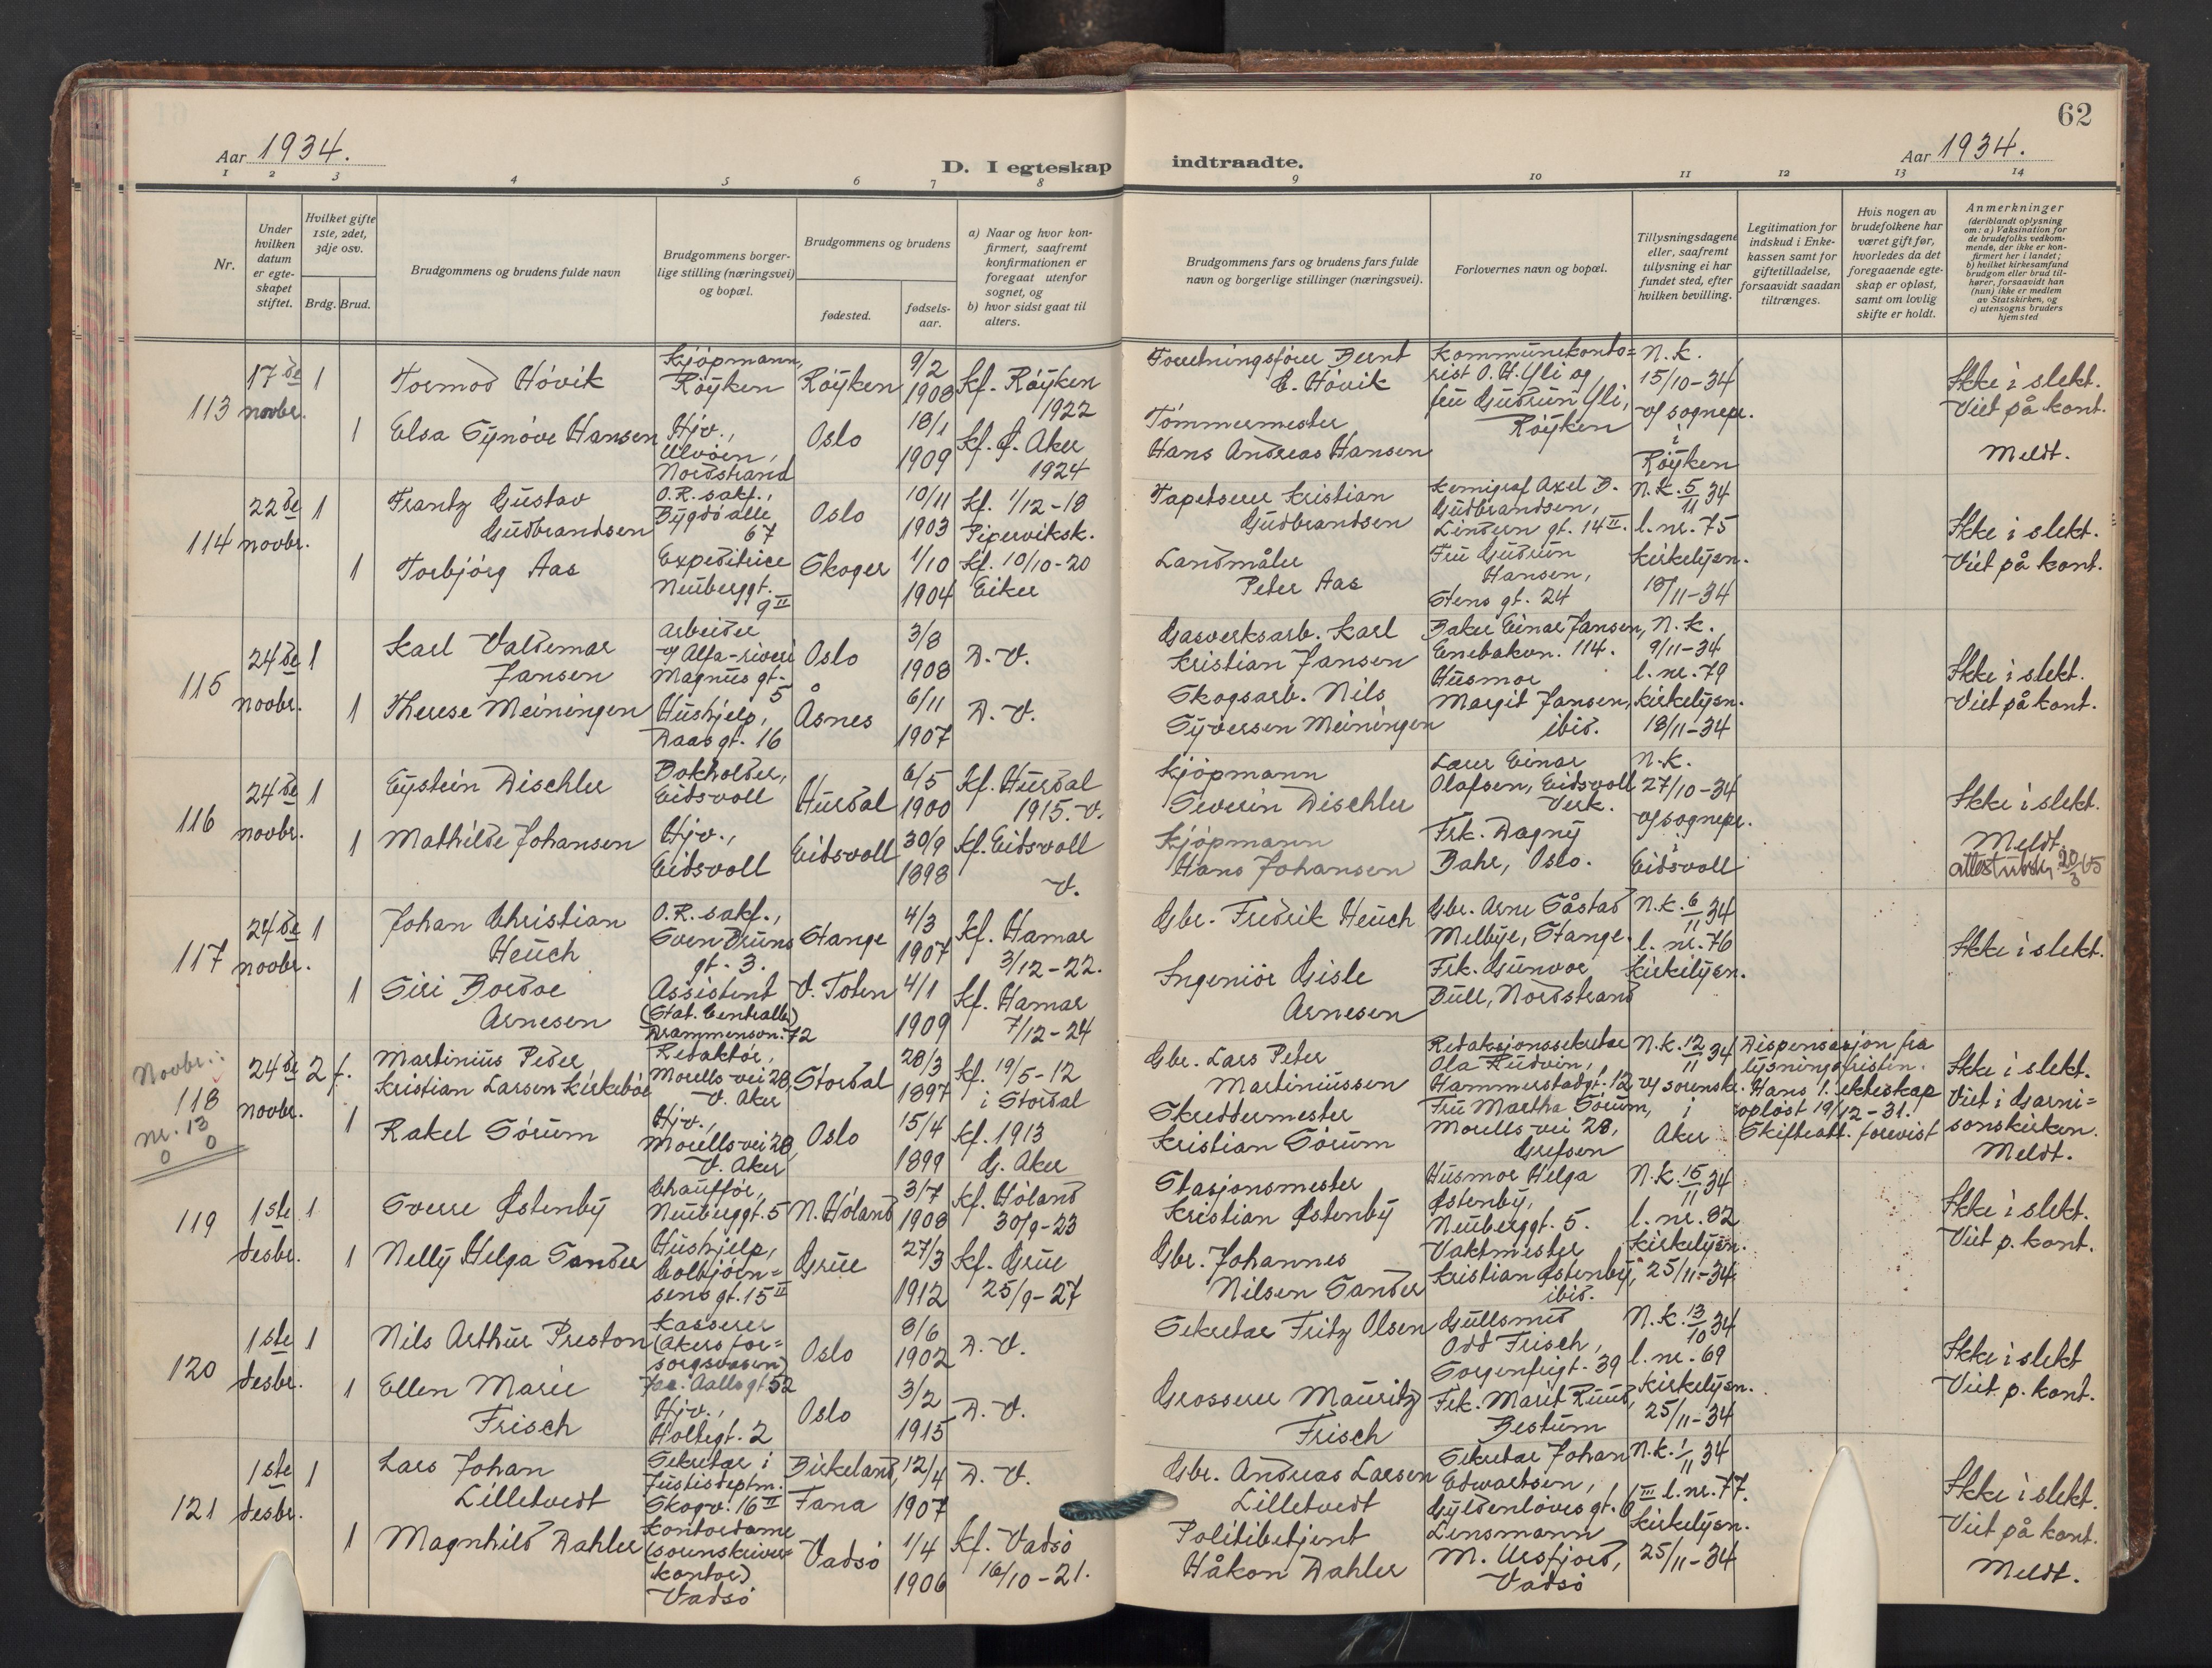 62
Aar 1934.
D. I egteskap indtraadte.
Aar 1934.
1 2 3 4 5 6 7 8 9 10 11 12 13 14
Nr.
Under hvilken datum er egteskapet stiftet.
Hvilket gifte 1ste, 2det, 3dje osv.
Brdg. Brud.
Brudgommens og brudens fulde navn
Brudgommens borgerlige stilling (næringsvei) og bopæl.
Brudgommens og brudens
fødested.
fødsels-aar.
a) Naar og hvor konfirmert, saafremt konfirmationen er foregaat utenfor sognet, og
b) hvor sidst gaat til alters.
Brudgommens fars og brudens fars fulde navn og borgerlige stillinger (næringsvei).
Forlovernes navn og bopæl.
Tillysningsdagene eller, saafremt tillysning ei har fundet sted, efter hvilken bevilling.
Legitimation for indskud i Enkekassen samt for giftetilladelse, forsaavidt saadan tiltrænges.
Hvis nogen av brudefolkene har været gift før, hvorledes da det foregaaende egteskap er opløst, samt om lovlig skifte er holdt.
Anmerkninger
(deriblandt oplysning om: a) Vaksination for de brudefolks vedkommende, der ikke er konfirmert her i landet; b) hvilket kirkesamfund brudgom eller brud tilhører, forsaavidt han (hun) ikke er medlem av Statskirken, og c) utensogns bruders hjemsted
113
17de novbr.
1
Tormod Hövik
Kjöpmann, Röyken
Röyken
9/2 1908
Kf. Röyken 1922
Forretningsfører Bernt E. Hövik
Kommunekontorist O. H. Yli og fru Gudrun Yli, Röyken
N.k. 15/10-34 v/ sognepr. i Röyken
Ikke i slekt.
Viet på kont.
Meldt.
1
Elsa Synöve Hansen
Hjv., Ulvöen, Nordstrand
Oslo
18/1 1909
Kf. Ø. Aker 1924
Tömmermester Hans Andreas Hansen
114
22de novbr.
1
Frantz Gustav Gudbrandsen
O.R. sakf., Bygdö alle 67
Oslo
10/11 1903
Kf. 1/12-18 Piperviksk.
Tapetserer Kristian Gudbrandsen
Kemigraf Axel B. Gudbrandsen, Lindern gt. 14 II.
N.k. 5/11 34 l. nr. 75 Kirkelysn. 18/11-34
Ikke i slekt.
Viet på kont.
1
Torbjörg Aas
Expeditrice Neuberggt. 9 II
Skoger
1/10 1904
Kf. 10/10-20 Eiker
Landmåler Peter Aas
Fru Gudrun Hansen, Stens gt. 24
115
24de novbr.
1
Karl Valdemar Jansen
Arbeider v/ Alfa-riveri Magnus gt. 5
Oslo
3/8 1908
D. V.
Gasverksarb. Karl Kristian Jansen
Baker Einar Jansen, Enebakvn. 114.
N.k. 9/11-34 l. nr. 79 Kirkelysn. 18/11-34
Ikke i slekt.
Viet på kont.
1
Therese Meiningen
Hushjelp, Daas gt. 16
Åsnes
6/11 1907
D. V.
Skogsarb. Nils Syversen Meiningen
Husmor Margit Jansen, ibid.
116
24de novbr.
1
Eystein Dischler
Bokholder, Eidsvoll
Hurdal
6/5 1900
Kf. Hurdal 1915. V.
Kjöpmann Severin Dischler
Lærer Einar Olafsen, Eidsvoll Verk.
N.k. 27/10-34 v/ sognepr. i Eidsvoll
Ikke i slekt.
Meldt.
attest utst. 20/3 65
1
Mathilde Johansen
Hjv., Eidsvoll
Eidsvoll
30/9 1898
Kf. Eidsvoll V.
Kjöpmann Hans Johansen
Frk. Dagny Bahr, Oslo.
117
24de novbr.
1
Johan Christian Heuch
O.R. sakf., Sven Bruns gt. 3.
Stange
4/3 1907
Kf. Hamar 3/12-22.
Gbr. Fredrik Heuch
Gbr. Arne Såstad Melbye, Stange.
N.k. 6/11 34 l. nr. 76 Kirkelysn.
Ikke i slekt.
1
Siri Bordoe Arnesen
Assistent (Stat. Centralb.) Drammensvn. 72
V. Toten
4/1 1909
Kf. Hamar 7/12-24
Ingeniör Gisle Arnesen
Frk. Gunvor Bull, Nordstrand
Novbr.: nr. 13
0 0
118
24de novbr.
2 f.
Martinius Peder Kristian Larsen Kirkeböe
Redaktör, Morells vei 28, V. Aker
Stordal
28/3 1897
Kf. 19/5-12 i Stordal
Gbr. Lars Peter Martiniussen
Redaksjonssekretær Ola Rudvin, Hammerstadgt. 12
N.k. 12/11 34 v/ sorenskr. i Aker
Dispensasjon fra lysningsfristen. Hans 1. ekteskap oplöst 19/12-31. Skifteatt. forevist
Ikke i slekt.
Viet i Garnisonskirken.
Meldt.
1
Rakel Sörum
Hjv., Morells vei 28, V. Aker
Oslo
15/4 1899
Kf. 1913 G. Aker
Skreddermester Kristian Sörum
Fru Martha Sörum, Morells vei 28, Grefsen
119
1ste desbr.
1
Sverre Østenby
Chauffør, Neuberggt. 5
N. Höland
3/7 1908
Kf. Höland 30/9-23
Stasjonsmester Kristian Østenby
Husmor Helga Østenby, Neuberggt. 5.
N.k. 15/11 34 l. nr. 82 Kirkelysn. 25/11-34
Ikke i slekt.
Viet p. kont.
1
Nelly Helga Sander
Hushjelp, Colbjörnsens gt. 15 II
Grue
27/3 1912
Kf. Grue 25/9-27
Gbr. Johannes Nilsen Sander
Vaktmester Kristian Østenby, ibid.
120
1ste desbr.
1
Nils Arthur Preston
Kasserer (Akers forsorgsvæsen) Jac. Aalls gt 52
Oslo
8/6 1902
D. V.
Sekretær Fritz Olsen
Gullsmed Odd Frisch, Sorgenfrigt. 39
N.k. 13/10 34 l. nr. 69 Kirkelysn. 25/11-34
Ikke i slekt
Viet p. kont.
1
Ellen Marie Frisch
Hjv., Holtegt. 2
Oslo
3/2 1915
D. V.
Grosserer Mauritz Frisch
Frk. Marit Ruud, Bestum
121
1ste desbr.
1
Lars Johan Lilletvedt
Sekretær i Justisdeptm. Skogv. 16 II
Birkeland, Fana
12/4 1907
D. V.
Gbr. Andreas Larsen Lilletvedt
Sekretær Johan Edwartsen, Gyldenlöves gt. 6 III
N.k. 1/11 34 l. nr. 77. Kirkelysn. 25/11-34
Ikke i slekt.
Viet på kont.
Meldt.
1
Magnhild Dahler
Kontordame (sorenskriverkontor) Vadsö
Vadsö
1/4 1906
Kf. Vadsö 16/10-21.
Politibetjent Håkon Dahler
Lensmann M. Ursfjord, Vadsö